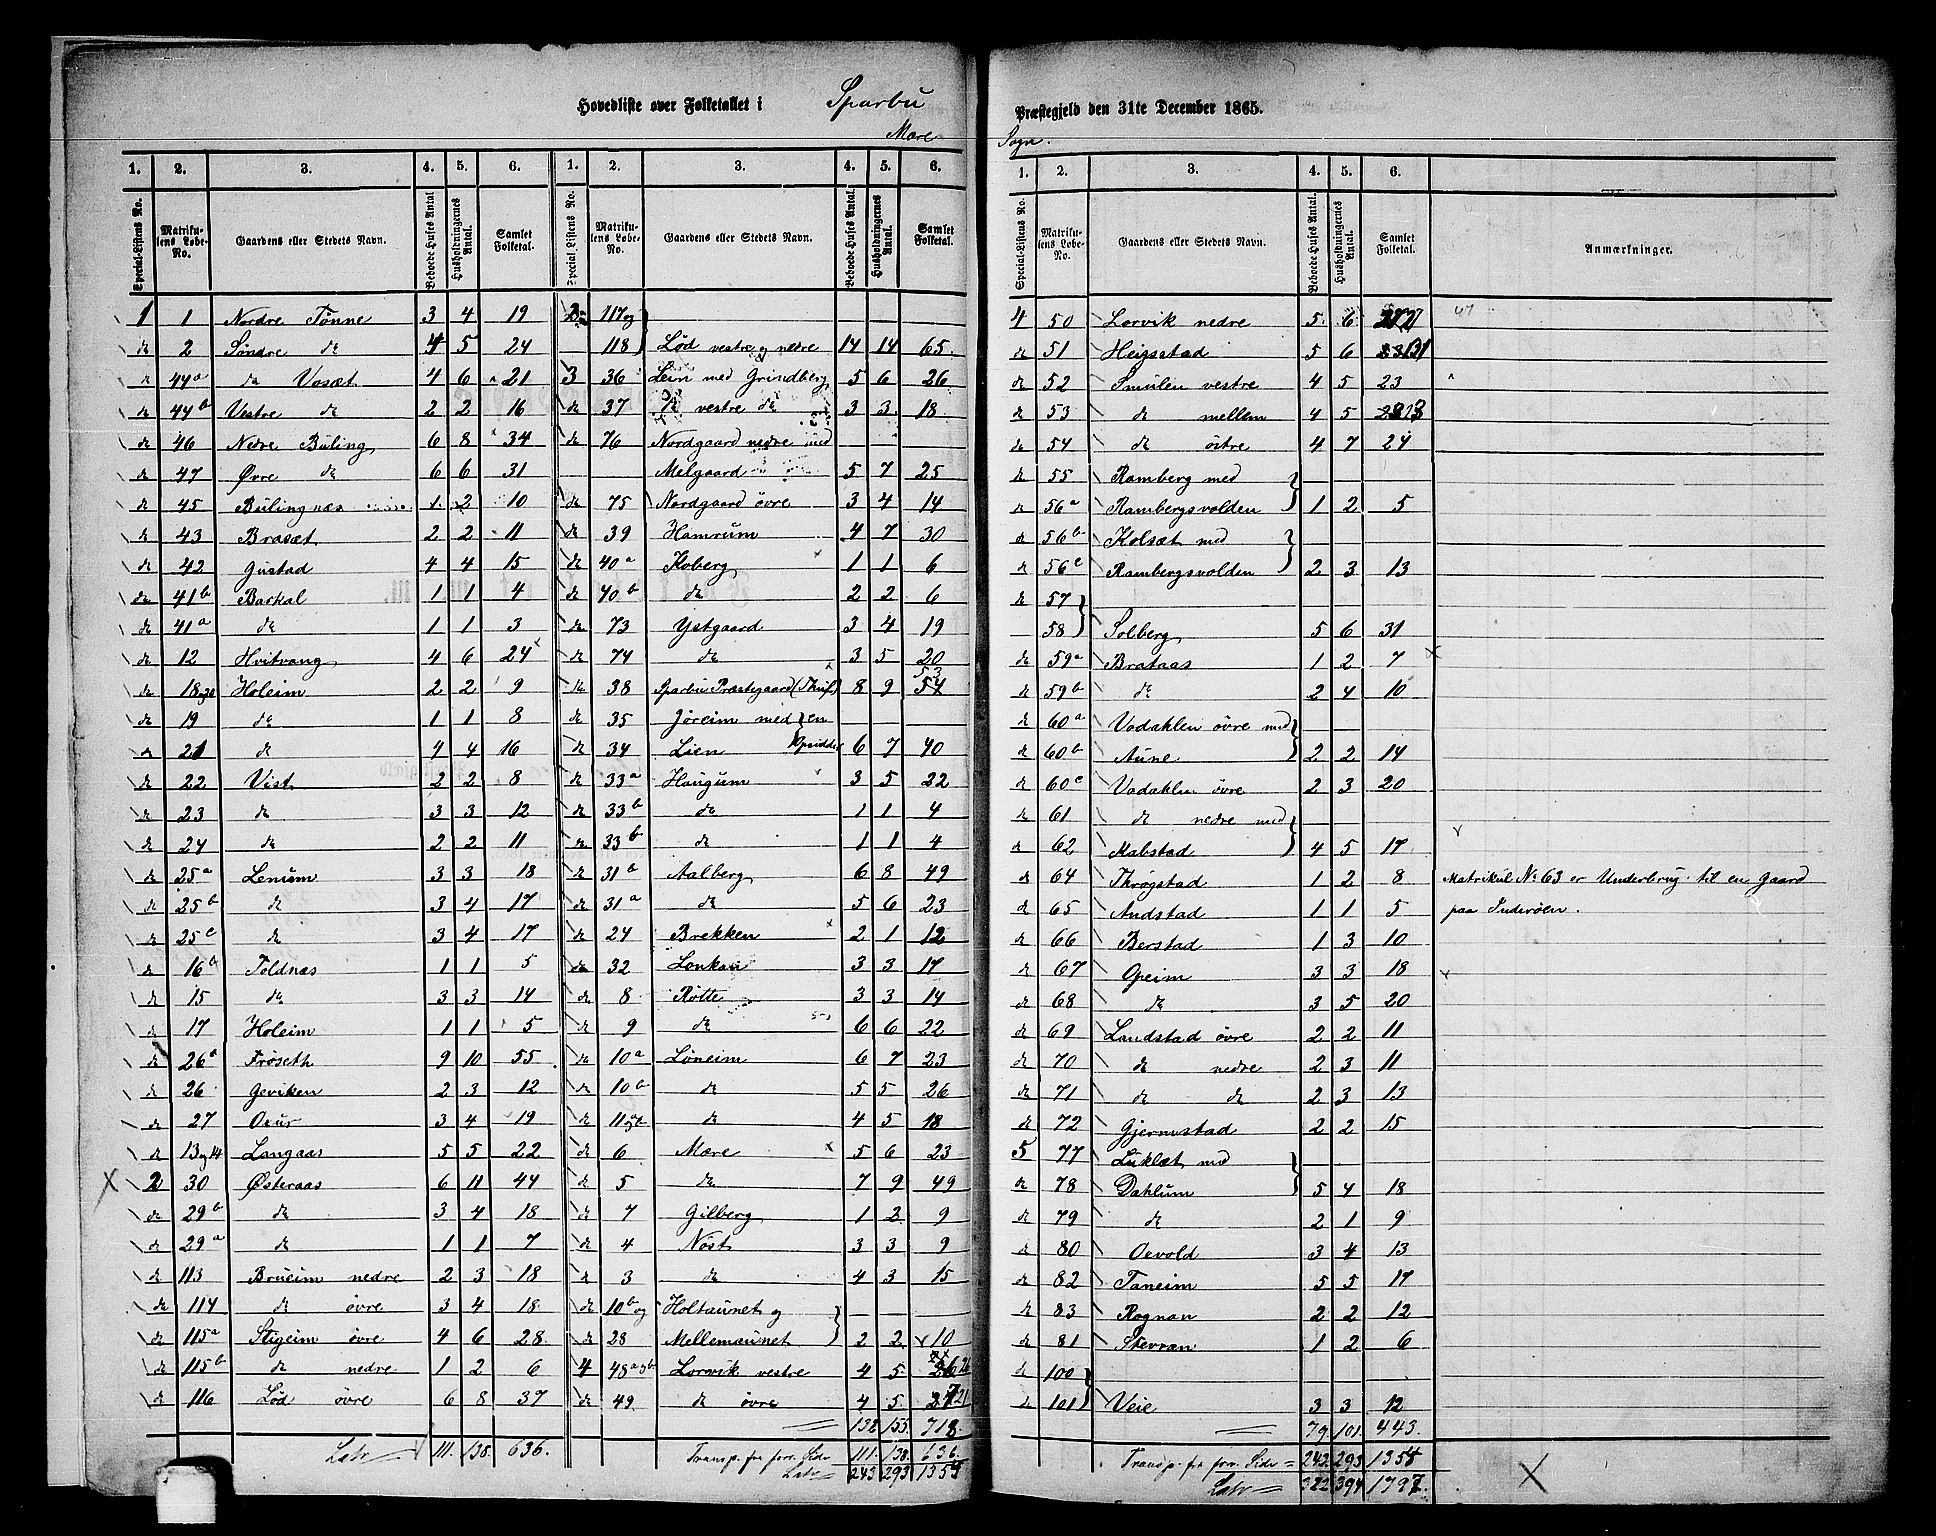 Hovedliste over Folketallet i Sparbu Præstegjeld den 31te December 1865.
Mære Sogn.
1. 2. 3. 4. 5. 6. 1. 2. 3. 4. 5. 6.
Special-Listens No. Matrikulens Løbe-No. Gaardens eller Stedets Navn. Beboede Huses Antal Husholdningernes Antal. Samlet Folketal. Special-Listens No. Matrikulens Løbe-No. Gaardens eller Stedets Navn. Beboede Huses Antal. Husholdningernes Antal. Samlet Folketal.
1 1 Nordre Tønne 3 4 19
do 2 Søndre do 4 5 24
do 44a do Vosæt 4 6 21
do 44b Vestre do 2 2 16
do 46 Nedre Buling 6 8 34
do 47 Øvre do 6 6 31
do 45 Bulingnæs 1 2 10
do 43 Brasæt 2 2 11
do 42 Gustad 4 4 15
do 41b Barkal 1 1 4
do 41a do 1 1 3
do 12 Hvitvang 4 6 24
do 18 Holeim 2 2 9
do 19 do 1 1 8
do 21 do 4 4 16
do 22 Vist 2 2 8
do 23 do 3 3 12
do 24 do 2 2 11
do 25a Lenum 3 3 18
do 25b do 3 4 17
do 25c do 3 4 17
do 16b Toldnæs 1 1 5
do 15 do 3 3 14
do 17 Holeim 1 1 5
do 26a Frøseth 9 10 55
do 26 Geviken 2 3 12
do 27 Oxur 3 4 19
do 13 og 14 Langaas 5 5 22
2 30 Østeraas 6 11 44
do 29b do 3 4 18
do 29a do 1 1 7
do 113 Brueim nedre 2 3 18
do 114 do øvre 3 4 18
do 115a Stigeim øvre 4 6 28
do 115b do nedre 1 2 6
do 116 Lød øvre 6 8 37
Latr 111. 138. 636.
2 117 og
118 Lød vestre og nedre 14 14 65
3 36 Lein med Grindberg 5 6 26
do 37 do vestre do 3 3 18
do 76 Nordgaard nedre med
Melgaard 5 7 25
do 75 Nordgaard øvre 3 4 14
do 39 Hamrum 4 7 30
do 40a Koberg 1 1 6
do 40b do 2 2 6
do 73 Ystgaard 3 4 19
do 74 do 3 5 20
do 38 Sparbu Præstegaard 8 9 54 53
do 35 Jøreim med en
do 34 Lien Opsidder 6 7 40
do 33a Haugum 3 5 22
do 33b do 1 1 4
do 33b do 1 1 4
do 31b Aalberg 6 8 49
do 31a do 5 6 23
do 24 Brekken 2 1 12
do 32 Lonkan 3 3 17
do 8 Rotte 3 3 14
do 9 do 6 6 22
do 10a Løneim 6 7 23
do 10b do 5 5 26
do 11 do 4 5 18
do 6 Mære 5 6 23
do 5 do 7 9 49
do 7 Gilberg 1 2 9
do 4 Nøst 3 3 9
do 3 do 4 3 15
do 10b og Holtaunet og
do 28 Mellemaunet 2 2 10
4 48a og b Lorvik vestre 4 5 26
do 49 do øvre 4 5 21
132 155. 718.
Transp. fr forr. Side 111. 138. 636.
Latr 243 293 1354
1. 2. 3. 4. 5. 6.
Special-Listens No. Matrikulens Løbe-No. Gaardens eller Stedets Navn. Beboede Huses Antal. Husholdningernes Antal. Samlet Folketal. Anmærkninger.
4 50 Lorvik nedre 5 6 27
do 51 Heigstad 5 6 31
do 52 Smulen vestre 4 5 23
do 53 do mellem 4 5 23
do 54 do östre 4 7 24
do 55 Ramberg med
do 56a Rambergsvolden 1 2 5
do 56b Kolsæt med
do 56c Rambergsvolden 2 3 13
do 57
58 Solberg 5 6 31
do 59a Brataas 1 2 7
do 59b do 2 4 10
do 60a Vadahlen øvre med
do 60b Aune 2 2 14
do 60c Vadahlen øvre 2 3 20
do 61 do nedre med
do 62 Mabstad 4 5 17
do 64 Thrøgstad 1 2 8 Matrikul No 63 er Underbrug til en Gaard
do 65 Andstad 1 1 5 paa Inderøen.
do 66 Berstad 1 3 10
do 67 Opeim 3 3 18
do 68 do 3 5 20
do 69 Landstad øvre 2 2 11
do 70 do nedre 2 3 11
do 71 do do 2 3 13
do 72 Gjermstad 2 2 15
5 77 Luklæt med
do 78 Dahlum 5 4 18
do 79 do 2 1 9
do 80 Oxvold 3 4 13
do 82 Taneim 5 5 17
do 83 Rognan 2 2 12
do 81 Stevran 1 2 6
do 100
do 101 Veie 3 3 12
79. 101. 443.
Transp. fr forr. Side = 243. 293 1354
Latr = 322 394 1797.